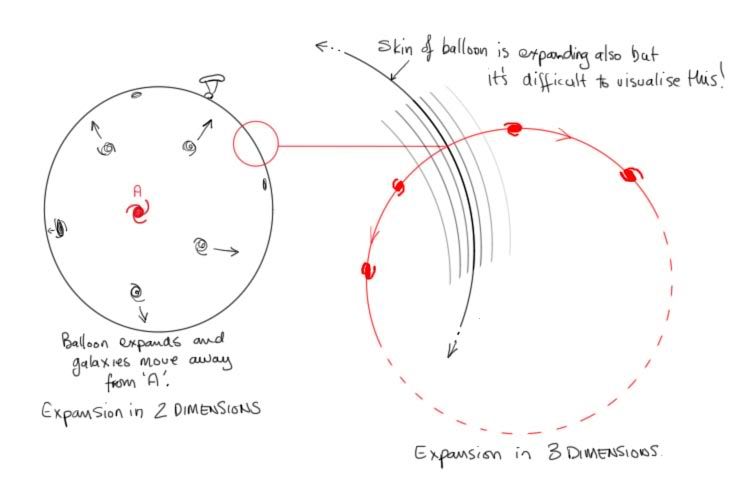 Skin of balloon is expanding also but
it's difficult to visualise this!
A
Balloon expands and
galaxies move away
from 'A'.
Expansion in 2 DIMENSIONS
Expansion in 3 DIMENSIONS.